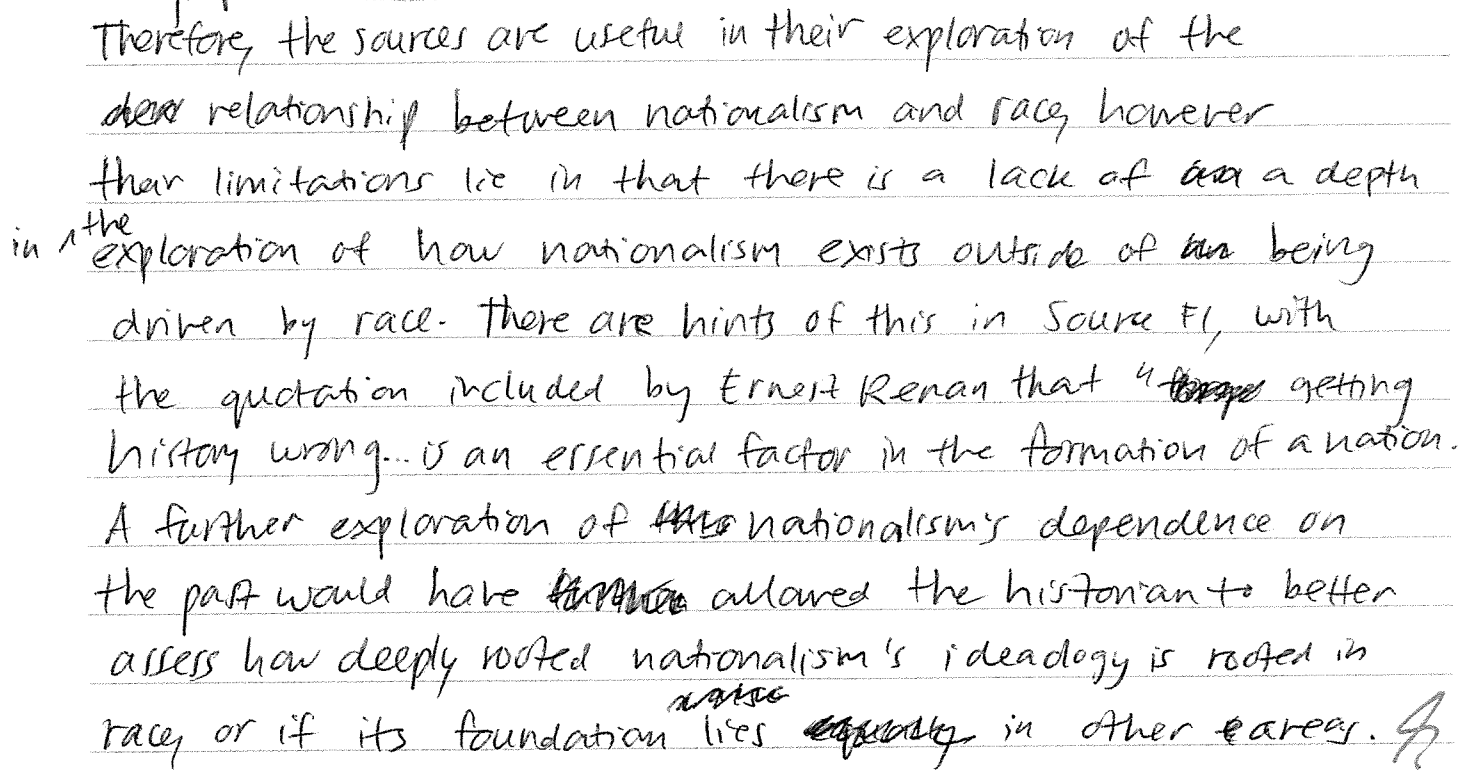 Therefore, the sources are useful in their exploration of the
relationship between nationalism and race, however
their limitations lie in that there is a lack of a depth
in the exploration of how nationalism exists outside of being
driven by race. There are hints of this in Source F1, with
the quotation included by Ernest Renan that " getting
history wrong... is an essential factor in the formation of a nation.
A further exploration of nationalism's dependence on
the past would have allowed the historian to better
assess how deeply rooted nationalism's ideadogy is rooted in
race, or if its foundation lies in other areas.